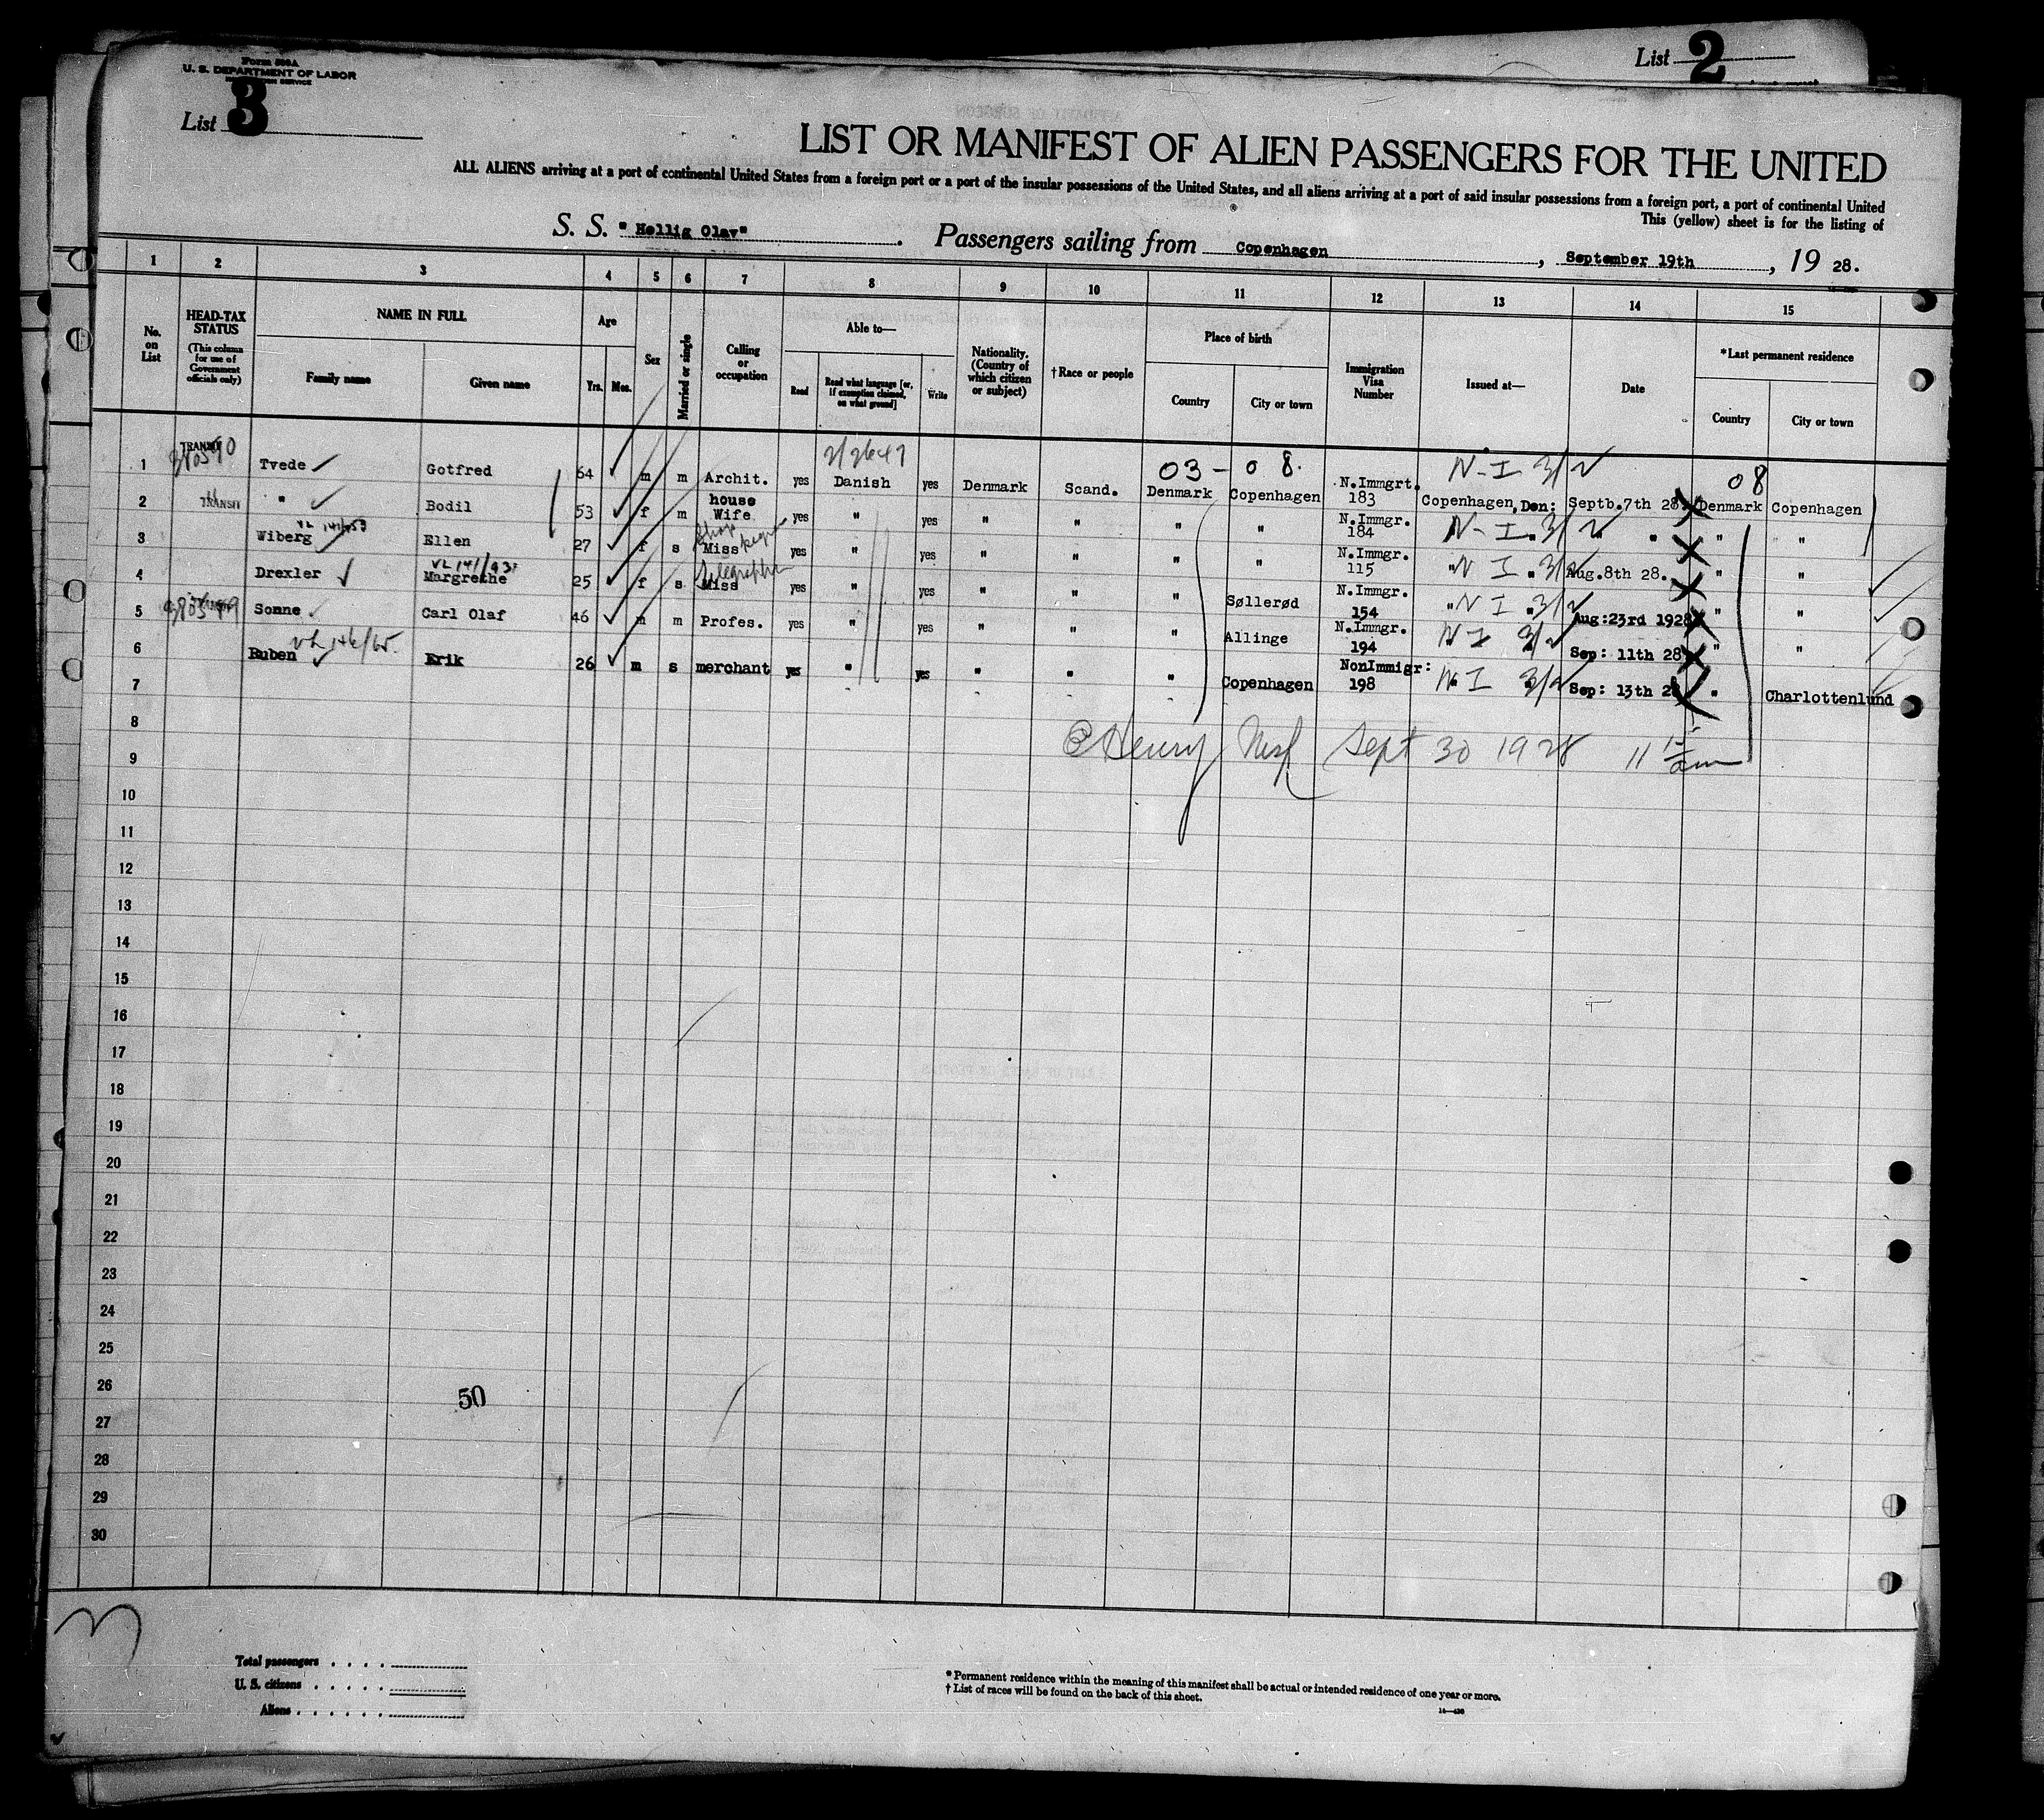 List 2
Form 500A
U. S. DEPARTMENT OF LABOR
IMMIGRATION SERVICE
List 3
LIST OR MANIFEST OF ALIEN PASSENGERS FOR THE UNITED
ALL ALIENS arriving at a port of continental United States from a foreign port or a port of the insular possessions of the United States, and all aliens arriving at a port of said insular possessions from a foreign port, a port of continental United
This (yellow) sheet is for the listing of
S. S. "Hellig Olav". Passengers sailing from Copenhagen, September 19th, 19 28.
1 2 3 4 5 6 7 8 9 10 11 12 13 14 15
No. on List
HEAD-TAX STATUS
(This column for use of Government officials only)
NAME IN FULL
Family name
Given name
Age
Yrs. Mos.
Sex
Married or single
Calling or occupation
Able to—
Read
Read what language [or, if exemption claimed, on what ground]
Write
Nationality. (Country of which citizen or subject)
†Race or people
Place of birth
Country
City or town
Immigration Visa Number
Issued at—
Date
*Last permanent residence
Country
City or town
03 - 08. N-I 3/2 08
1 TRANSIT Tvede Gotfred 64 m m Archit. yes Danish yes Denmark Scand. Denmark Copenhagen N.Immgrt. 183 Copenhagen, Den: Septb.7th 28. Denmark Copenhagen
2 TRANSIT " Bodil 53 f m house Wife yes " yes " " " " N.Immgr. 184 N-I 3/2 " " "
VL 141/953
3 Wiberg Ellen 27 f s Miss yes " yes " " " " N.Immgr. 115 " N I 3/2 Aug.8th 28. " "
VL 141/931
4 Drexler Margrethe 25 f s Miss yes " yes " " " Søllerød N.Immgr. 154 " N I 3/2 Aug:23rd 1928 " "
5 Sonne Carl Olaf 46 m m Profes. yes " yes " " " Allinge N.Immgr. 194 N I 3/2 Sep: 11th 28 " "
VL 146/65.
6 Ruben Erik 26 m s merchant yes " yes " " " Copenhagen NonImmigr: 198 N I 3/2 Sep: 13th 28 " Charlottenlund
7
8
Henry Sept 30 1928 11 15 am
9
10
11
12
13
14
15
16
17
18
19
20
21
22
23
24
25
26
50
27
28
29
30
Total passengers
U. S. citizens
Aliens
* Permanent residence within the meaning of this manifest shall be actual or intended residence of one year or more.
† List of races will be found on the back of this sheet.